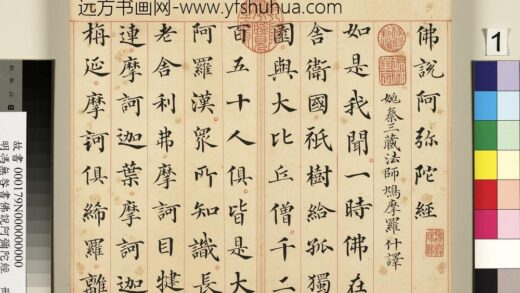 远方书画网-www.yfshuhua.com
1
佛說阿弥陀經
姚秦三藏法師鳩摩羅什譯
如是我聞一時佛在
舍衛國祇樹給孤獨
園與大比丘僧千二
百五十人俱皆是大
阿羅漢眾所知識長
老舍利弗摩訶目揵
連摩訶迦葉摩訶迦
栴延摩訶俱絺羅離
故書 000179N000000000
明馮無咎書佛說阿彌陀經 冊